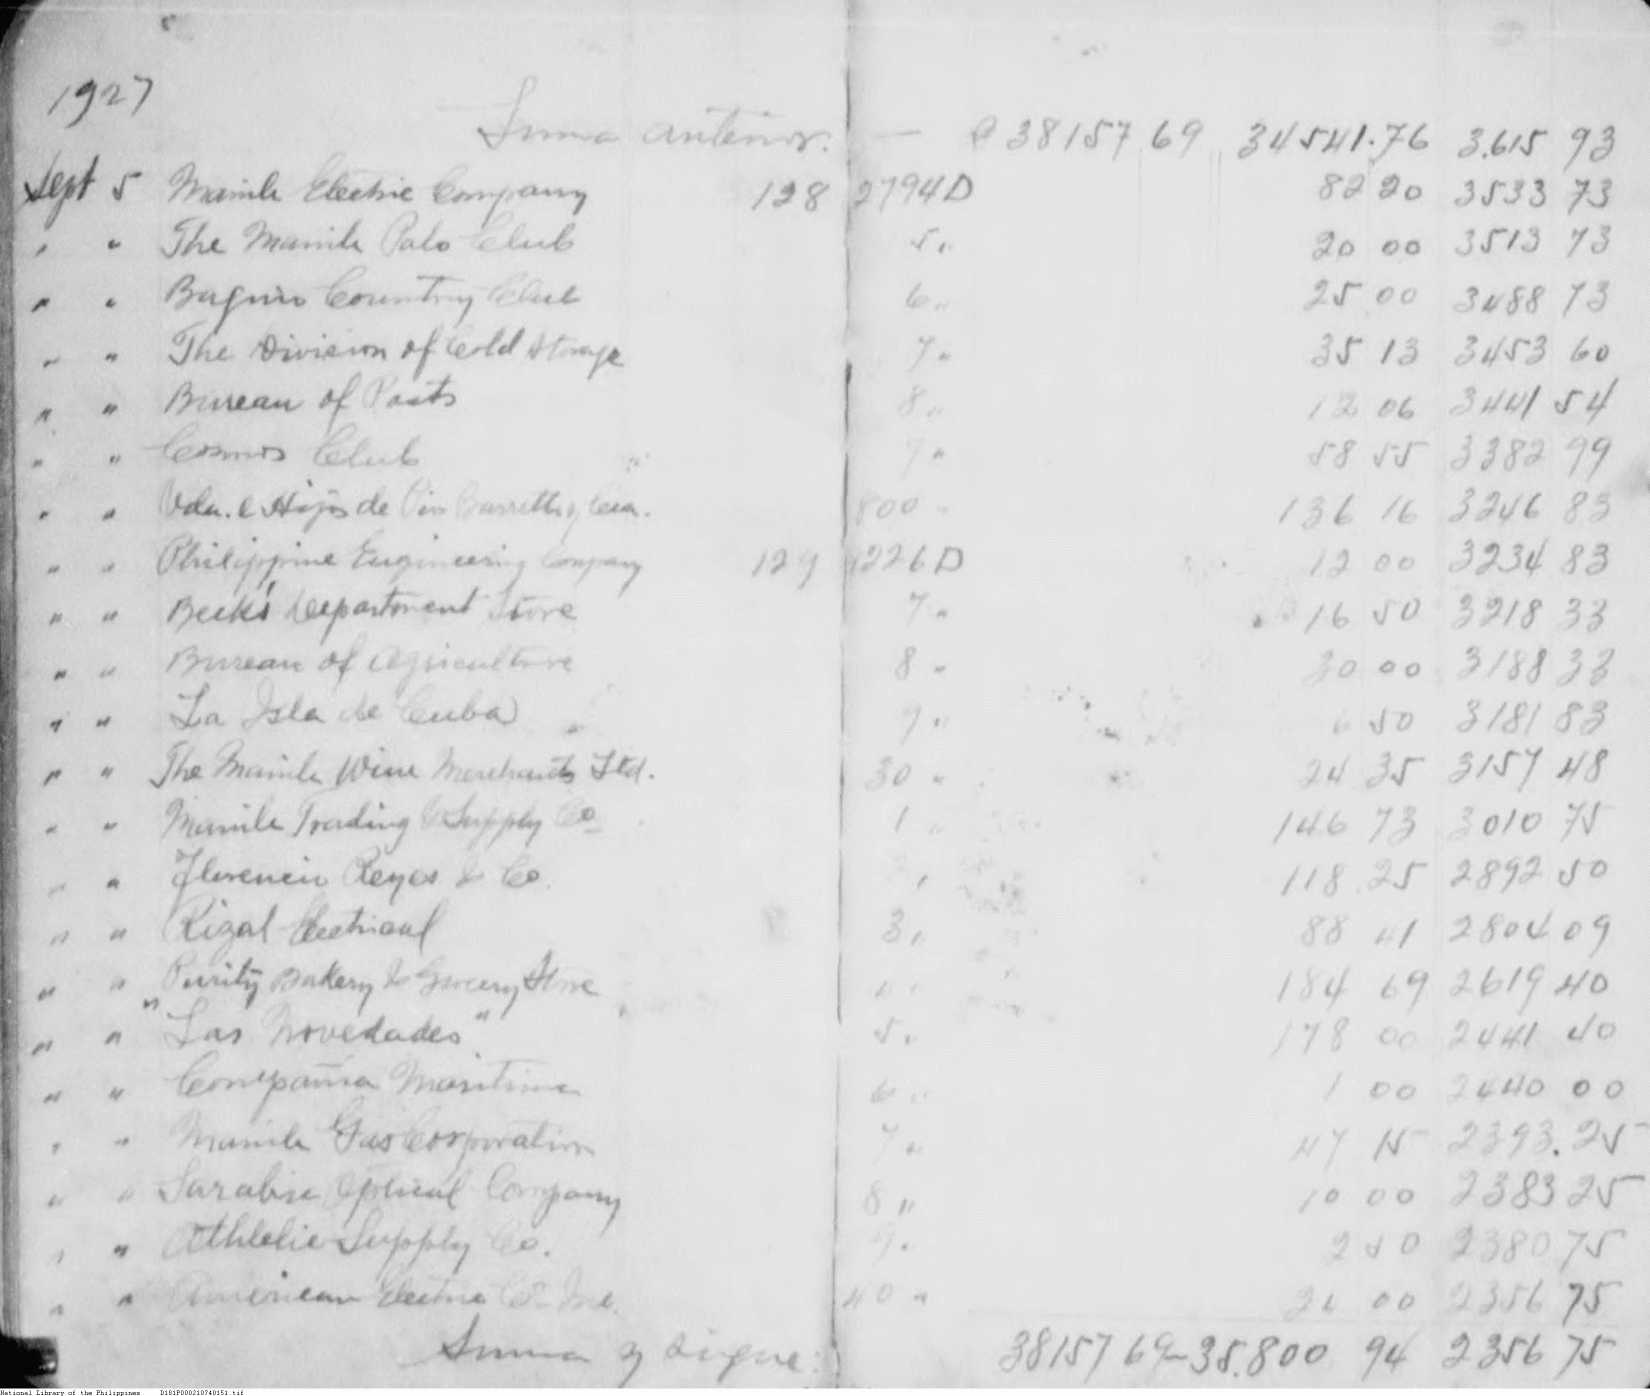 1927
Suma anterior. — ₱ 38157 69 34541.76 3.615 93
Sept 5 Manila Electric Company 128 2794D 82 20 3533 73
" " The Manila Polo Club 5 " 20 00 3513 73
" " Baguio Country Club 6 " 25 00 3488 73
" " The Division of Cold Storage 7 " 35 13 3453 60
" " Bureau of Posts 8 " 12 06 3441 54
" " Cosmos Club 9 " 58 55 3382 99
" " Vda. e Hijos de Pio Barretto y Cia. 800 " 136 16 3246 83
" " Philippine Engineering Company 129 226D 12 00 3234 83
" " Beck's Department Store 7 " 16 50 3218 33
" " Bureau of Agriculture 8 " 30 00 3188 33
" " La Isla de Cuba 9 " 6 50 3181 83
" " The Manila Wine Merchants Ltd. 30 " 24 35 3157 48
" " Manila Trading & Supply Co 1 " 146 73 3010 75
" " Florencio Reyes & Co. " 118 25 2892 50
" " Rizal Electrical 3 " 88 41 2804 09
" " Purity Bakery & Grocery Store " 184 69 2619 40
" " "Las Novedades" 5 " 178 00 2441 40
" " Compañia Maritima 6 " 1 00 2440 00
" " Manila Gas Corporation 7 " 47 15 2393.25
" " Sarabia Optical Company 8 " 10 00 2383 25
" " Athletic Supply Co. 9 " 2 50 2380 75
" " American Electric Co. Inc. 40 " 24 00 2356 75
Suma y sigue: 38157 69 - 35.800 94 2356 75
National Library of the Philippines D181P000210740151.tif